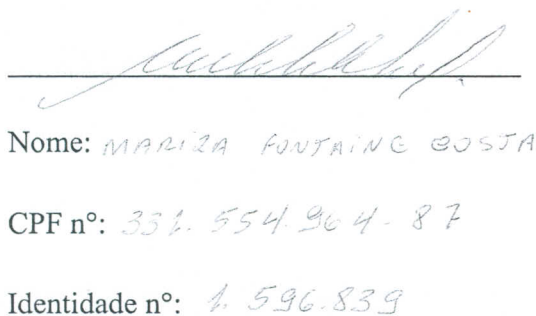 Nome: MARIZA FONTAINE COSTA
CPF n°: 331.554.964-87
Identidade n°: 1.596.839